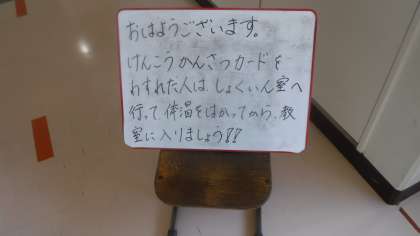 おはようございます。
けんこうかんさつカードを
わすれた人は、しょくいん室へ
行って体温をはかってから、教
室に入りましょう!!